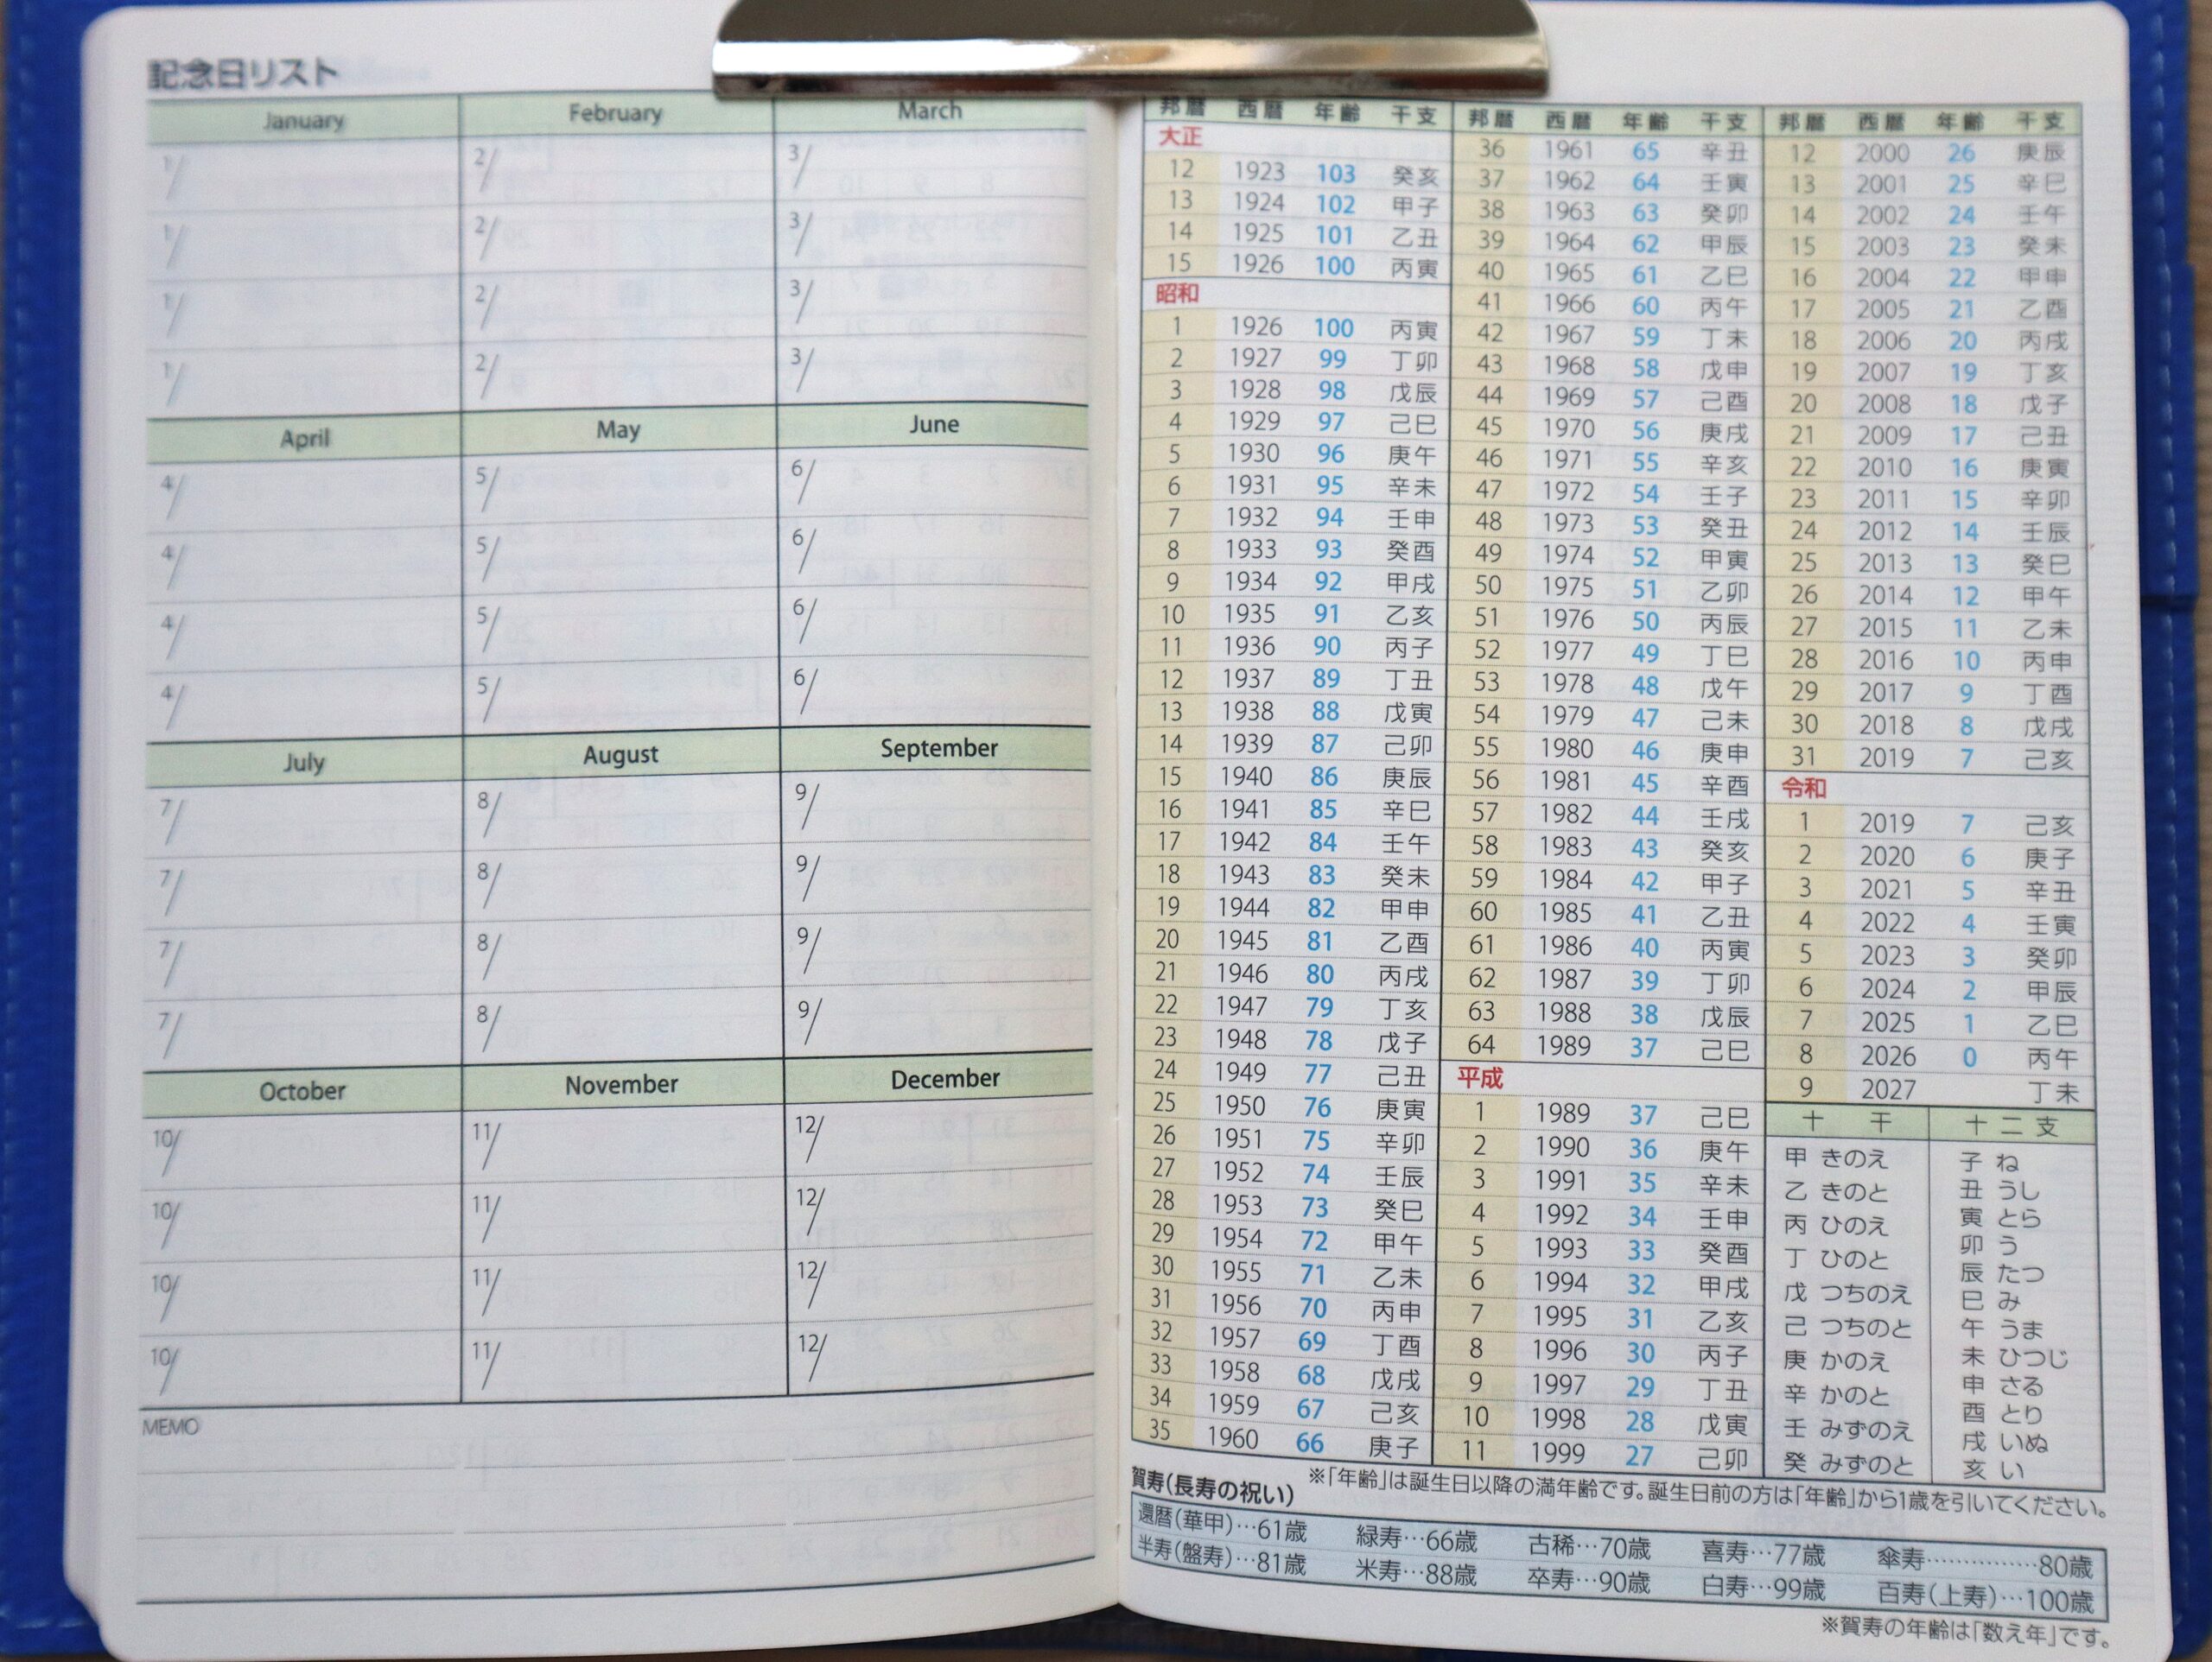 記念日リスト
January February March
1/ 2/ 3/
1/ 2/ 3/
1/ 2/ 3/
1/ 2/ 3/
April May June
4/ 5/ 6/
4/ 5/ 6/
4/ 5/ 6/
4/ 5/ 6/
July August September
7/ 8/ 9/
7/ 8/ 9/
7/ 8/ 9/
7/ 8/ 9/
October November December
10/ 11/ 12/
10/ 11/ 12/
10/ 11/ 12/
10/ 11/ 12/
MEMO
邦暦 西暦 年齢 干支
大正
12 1923 103 癸亥
13 1924 102 甲子
14 1925 101 乙丑
15 1926 100 丙寅
昭和
1 1926 100 丙寅
2 1927 99 丁卯
3 1928 98 戊辰
4 1929 97 己巳
5 1930 96 庚午
6 1931 95 辛未
7 1932 94 壬申
8 1933 93 癸酉
9 1934 92 甲戌
10 1935 91 乙亥
11 1936 90 丙子
12 1937 89 丁丑
13 1938 88 戊寅
14 1939 87 己卯
15 1940 86 庚辰
16 1941 85 辛巳
17 1942 84 壬午
18 1943 83 癸未
19 1944 82 甲申
20 1945 81 乙酉
21 1946 80 丙戌
22 1947 79 丁亥
23 1948 78 戊子
24 1949 77 己丑
25 1950 76 庚寅
26 1951 75 辛卯
27 1952 74 壬辰
28 1953 73 癸巳
29 1954 72 甲午
30 1955 71 乙未
31 1956 70 丙申
32 1957 69 丁酉
33 1958 68 戊戌
34 1959 67 己亥
35 1960 66 庚子
邦暦 西暦 年齢 干支
36 1961 65 辛丑
37 1962 64 壬寅
38 1963 63 癸卯
39 1964 62 甲辰
40 1965 61 乙巳
41 1966 60 丙午
42 1967 59 丁未
43 1968 58 戊申
44 1969 57 己酉
45 1970 56 庚戌
46 1971 55 辛亥
47 1972 54 壬子
48 1973 53 癸丑
49 1974 52 甲寅
50 1975 51 乙卯
51 1976 50 丙辰
52 1977 49 丁巳
53 1978 48 戊午
54 1979 47 己未
55 1980 46 庚申
56 1981 45 辛酉
57 1982 44 壬戌
58 1983 43 癸亥
59 1984 42 甲子
60 1985 41 乙丑
61 1986 40 丙寅
62 1987 39 丁卯
63 1988 38 戊辰
64 1989 37 己巳
平成
1 1989 37 己巳
2 1990 36 庚午
3 1991 35 辛未
4 1992 34 壬申
5 1993 33 癸酉
6 1994 32 甲戌
7 1995 31 乙亥
8 1996 30 丙子
9 1997 29 丁丑
10 1998 28 戊寅
11 1999 27 己卯
邦暦 西暦 年齢 干支
12 2000 26 庚辰
13 2001 25 辛巳
14 2002 24 壬午
15 2003 23 癸未
16 2004 22 甲申
17 2005 21 乙酉
18 2006 20 丙戌
19 2007 19 丁亥
20 2008 18 戊子
21 2009 17 己丑
22 2010 16 庚寅
23 2011 15 辛卯
24 2012 14 壬辰
25 2013 13 癸巳
26 2014 12 甲午
27 2015 11 乙未
28 2016 10 丙申
29 2017 9 丁酉
30 2018 8 戊戌
31 2019 7 己亥
令和
1 2019 7 己亥
2 2020 6 庚子
3 2021 5 辛丑
4 2022 4 壬寅
5 2023 3 癸卯
6 2024 2 甲辰
7 2025 1 乙巳
8 2026 0 丙午
9 2027 丁未
十干
甲 きのえ
乙 きのと
丙 ひのえ
丁 ひのと
戊 つちのえ
己 つちのと
庚 かのえ
辛 かのと
壬 みずのえ
癸 みずのと
十二支
子 ね
丑 うし
寅 とら
卯 う
辰 たつ
巳 み
午 うま
未 ひつじ
申 さる
酉 とり
戌 いぬ
亥 い
賀寿(長寿の祝い) ※「年齢」は誕生日以降の満年齢です。誕生日前の方は「年齢」から1歳を引いてください。
還暦(華甲)…61歳 緑寿…66歳 古稀…70歳 喜寿…77歳 傘寿……………80歳
半寿(盤寿)…81歳 米寿…88歳 卒寿…90歳 白寿…99歳 百寿(上寿)…100歳
※賀寿の年齢は「数え年」です。